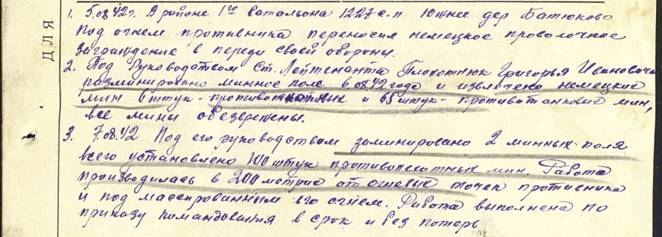 ДЛЯ
1. 5.08.42 г. В районе 1го Батальона 1227 с.п южнее дер Батюково
под огнем противника переносил немецкое проволочное
заграждение в переди своей обороны.
2. Под Руководством Ст. Лейтенанта Плохотнюк Григорья Ивановича
разминировано минное поле 6.08.42 года и извлечено немецких
мин 6 штук - противо и 65 штук - противотанковых мин,
все мины обезврежены.
3. 7.08.42 Под его руководством заминировано 2 минных поля
всего установлено 100 штук противопехотных мин. Работа
производилась в 200 метрах от огневых точек противника
и под массированным его огнем. Работа выполнена по
приказу командования в срок и без потерь